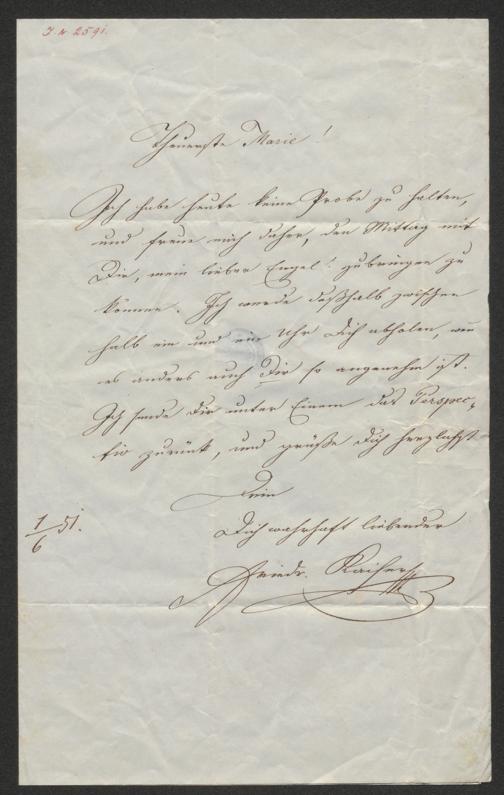 J. N. 2591.
Theuerste Marie!
Ich habe heute keine Probe zu halten,
und freue mich daher, den Mittag mit
Dir, mein lieber Engel! zubringen zu
können. Ich werde deßhalb zwischen
halb ein und ein Uhr Dich abholen, wenn
es anders auch Dir so angenehm ist.
Ich sende Dir unter Einem das Perspec-
tiv zurück, und grüße Dich herzlichst
Dein
Dich wahrhaft liebender
1/6 51.
Friedr. Kaiser